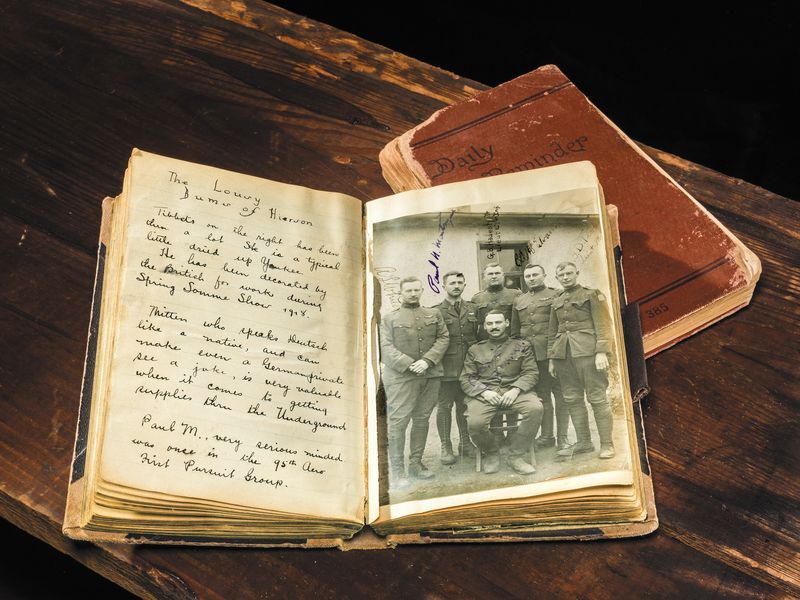 The Lousy
Bums of Hieron
Tibbets on the right has been
thru a lot. He is a typical
little dried up Yankee.
He has been decorated by
the British for work during
Spring Somme Show 1918.
Mitten who speaks Deutsch
like a native, and can
make even a German private
see a joke, is very valuable
when it comes to getting
supplies thru the Underground
Paul M., very serious minded
was once in the 95th Aero
First Pursuit Group.
Paul M.
Daily
Reminder
385